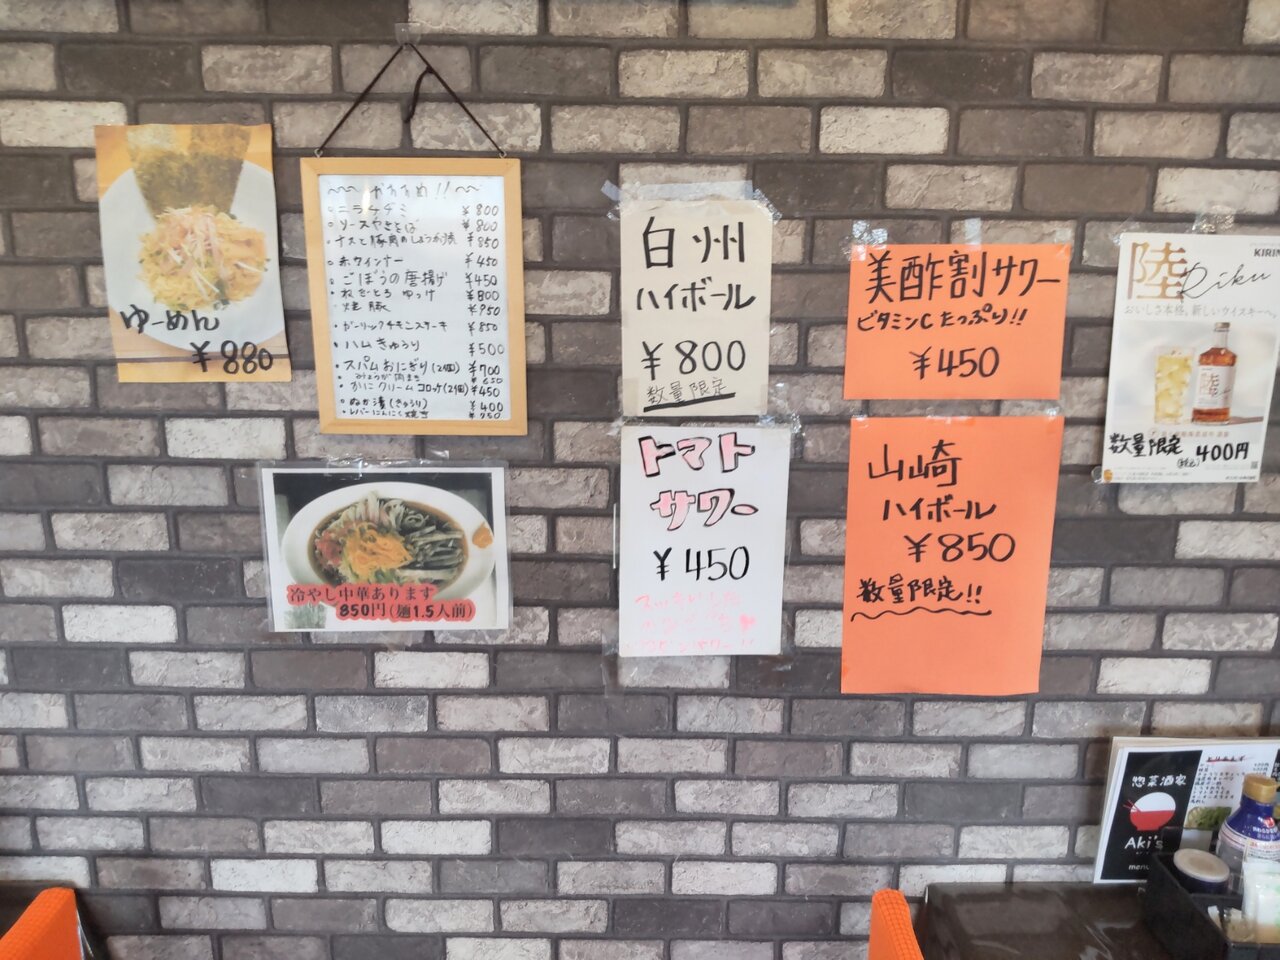 ゆーめん
¥880
おすすめ!!
ニラチヂミ ¥800
ソースやきそば ¥800
ナスと豚肉のしょうが焼 ¥850
赤ウインナー ¥450
ごぼうの唐揚げ ¥450
ねぎとろ ゆっけ ¥800
焼豚 ¥950
ガーリックチキンステーキ ¥850
ハムきゅうり ¥500
スパムおにぎり(2個) ¥700
みょうが肉まき ¥650
カニクリームコロッケ(2個) ¥450
ぬか漬(きゅうり) ¥400
レバーにんにく焼き
冷やし中華あります
850円(麺1.5人前)
白州
ハイボール
¥800
数量限定
トマト
サワー
¥450
美酢割サワー
ビタミンCたっぷり!!
¥450
山崎
ハイボール
¥850
数量限定!!
KIRIN
陸 Riku
おいしさ本格。新しいウイスキーへ。
数量限定 400円
(税込)
惣菜酒家
Aki's
menu